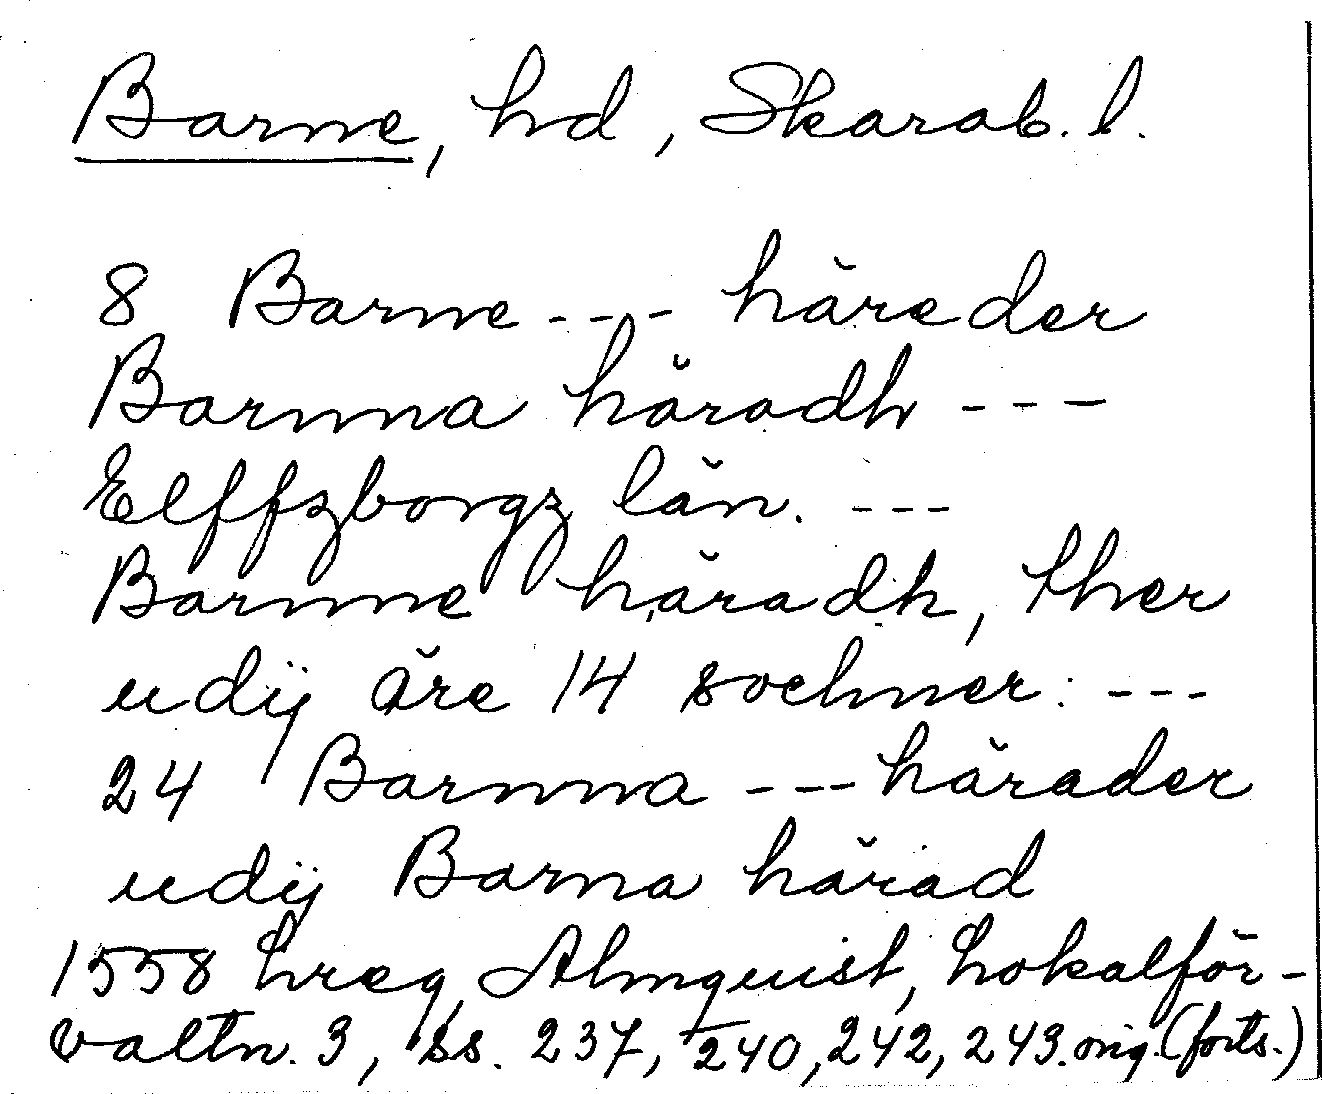 Barne, hd, Skarab. l.
8 Barne --- häreder
Barnna häradh ---
Elffzborgz län. ---
Barnne häradh, ther
udij äre 14 sochner. ---
24 Barnna --- härader
udij Barna härad
1558 Lreg, Almquist, Lokalför-
valtn. 3, ss. 237, 240, 242, 243. orig. (forts.)